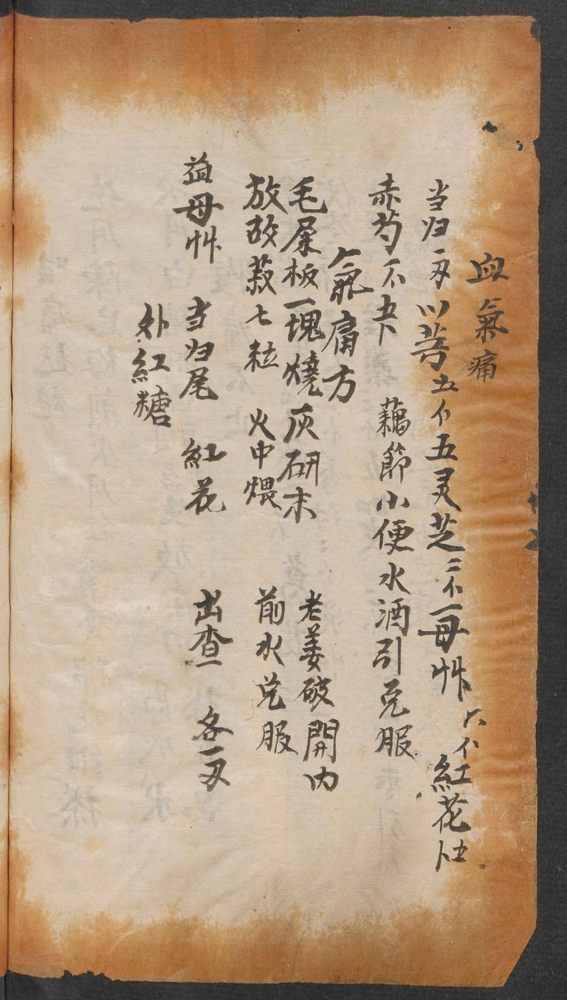 血氣痛
当归一刄川芎五个五灵芝三个一母艸六个紅花
赤芍不 藕節小便水酒引兑服
氣痛方
毛屎板一塊燒灰研末 老姜破開内
放故菽七粒 火中煨 前水兑服
益母艸 当归尾 紅花 出查 各一刄
外紅糖